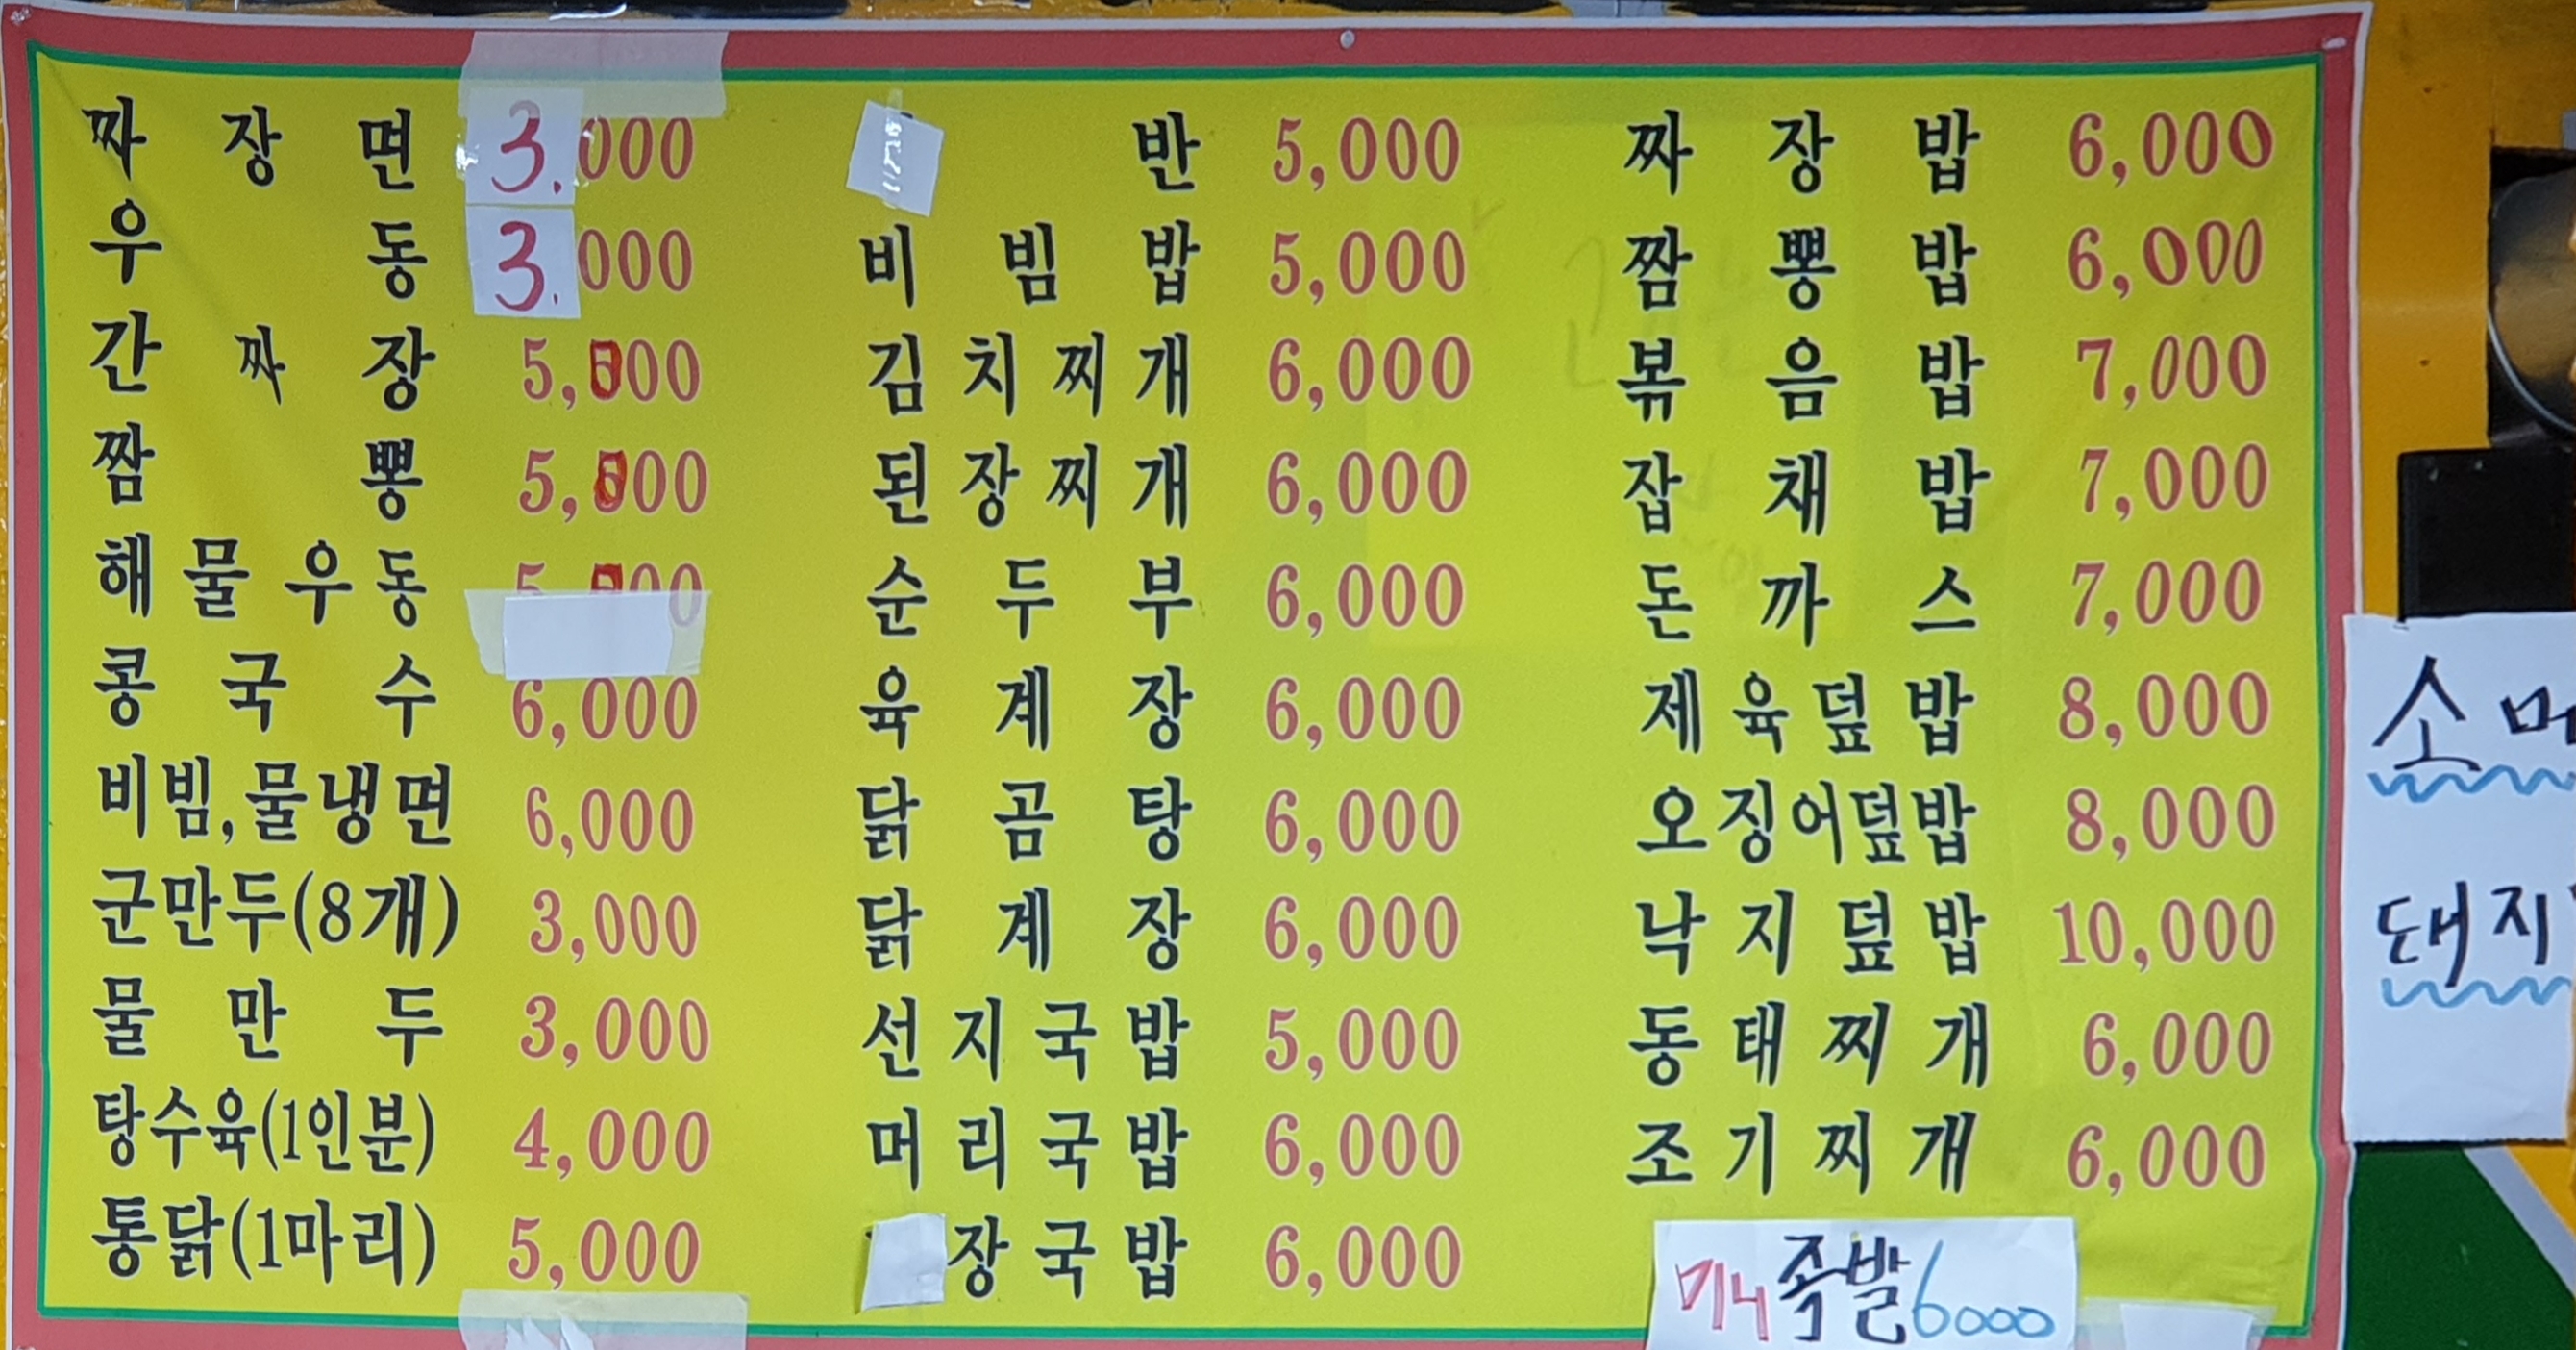 짜장면 3.000
우동 3.000
간짜장 5,500
짬뽕 5,500
해물우동
콩국수 6,000
비빔,물냉면 6,000
군만두(8개) 3,000
물만두 3,000
탕수육(1인분) 4,000
통닭(1마리) 5,000
반 5,000
비빔밥 5,000
김치찌개 6,000
된장찌개 6,000
순두부 6,000
육계장 6,000
닭곰탕 6,000
닭계장 6,000
선지국밥 5,000
머리국밥 6,000
장국밥 6,000
짜장밥 6,000
짬뽕밥 6,000
볶음밥 7,000
잡채밥 7,000
돈까스 7,000
제육덮밥 8,000
오징어덮밥 8,000
낙지덮밥 10,000
동태찌개 6,000
조기찌개 6,000
미니족발 6000
소
돼지